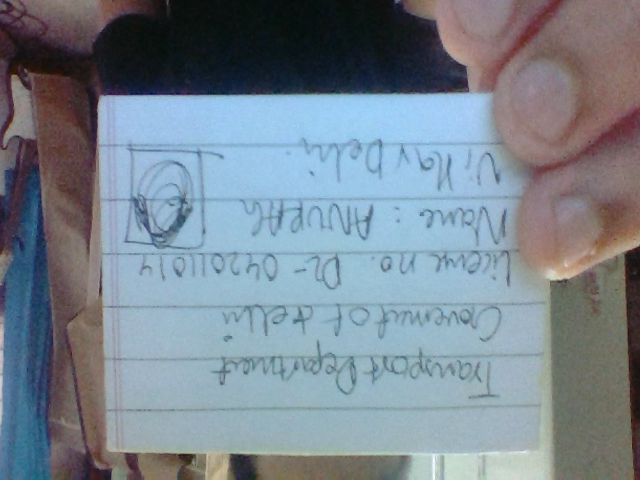 Transport Department
Government of delhi
License no. DL-042011014
Name : ANURAG
Vill Nav Delhi.